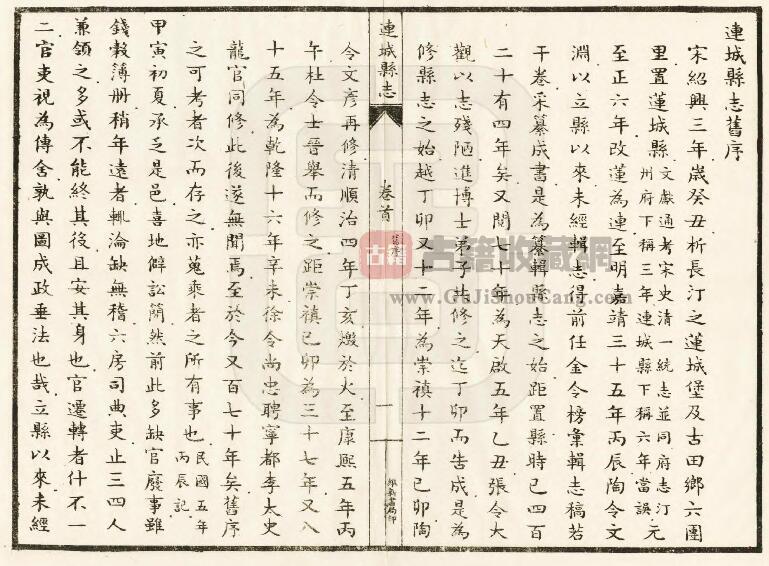 連城縣志舊序
宋紹興三年歲癸丑析長汀之蓮城堡及古田鄉六團
里置蓮城縣文獻通考宋史清一統志並同府志汀州府下稱三年連城縣下稱六年當誤元
至正六年改蓮為連至明嘉靖三十五年丙辰陶令文
淵以立縣以來未經輯志得前任金令榜彙輯志稿若
干卷采纂成書是為纂輯縣志之始距置縣時已四百
二十有四年矣又閱七十年為天啟五年乙丑張令大
觀以志殘陋進博士弟子共修之迄丁卯而告成是為
修縣志之始越丁卯又十二年為崇禎十二年己卯陶
連城縣志
卷首
舊序
一
維新書局印
令文彥再修清順治四年丁亥燬於火至康熙五年丙
午杜令士晉舉而修之距崇禎己卯為三十七年又八
十五年為乾隆十六年辛未徐令尚忠聘寧都李太史
龍官同修此後遂無聞焉至於今又百七十年矣舊序
之可考者次而存之亦蒐乘者之所有事也民國五年丙辰記
甲寅初夏承乏是邑喜地僻訟簡然前此多缺官廢事雖
錢穀簿册稍年遠者輒淪缺無稽六房司典吏止三四人
兼領之多或不能終其後且安其身也官遷轉者什不一
二官吏視為傳舍孰與圖成政垂法也哉立縣以來未經
古籍
古籍收藏網
www.GuJiShouCang.com